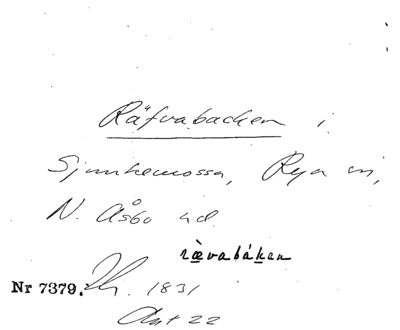 Räfvabacken i
Sjunkemossa, Rya sn,
N. Åsbo hd.
rævabáken
Nr 7379. 1831
Akt 22